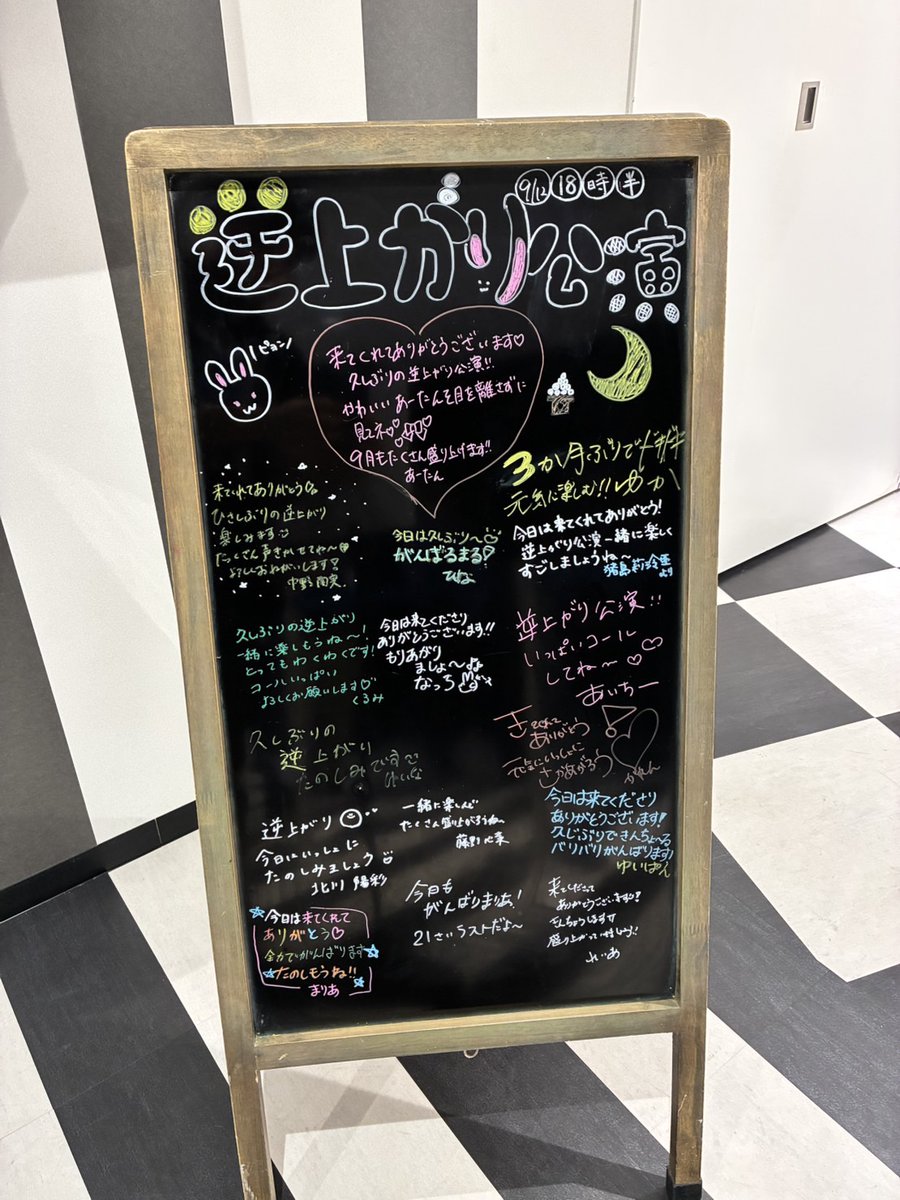 9/12 18時半
逆上がり公演
ピョン
来てくれてありがとうございます♡
久しぶりの逆上がり公演!!
かわいい あーたんを目を離さずに
見てネ♡
9月もたくさん盛り上げます!!
あーたん
3か月ぶりでドキドキ
元気に楽しむ!! ゆか
来てくれてありがとう
ひさしぶりの逆上がり
楽しみます
たっくさん声きかせてね〜
よろしくおねがいします!
今日は久しぶり〜
がんばるまる!
ひな
今日は来てくれてありがとう!
逆上がり公演一緒に楽しく
すごしましょうね〜
より
久しぶりの逆上がり
一緒に楽しもうね〜!
とってもわくわくです!
コールいっぱい
よろしくお願いします♡
くるみ
今日は来てくださり
ありがとうございます!!
もりあがり
ましょ〜
なっち
逆上がり公演!!
いっぱいコール
してね〜♡
あいちー
久しぶりの
逆上がり
たのしみです
きてくれて
ありがとう
元気にいっしょに
さかあがろう
逆上がり
今日はいっしょに
たのしみましょう
北川 陽彩
一緒に楽しんで
たくさん盛り上がろうね〜
今日は来てくださり
ありがとうございます!
久しぶりできんちょ〜る
バリバリがんばります!
ゆいぱん
今日は来てくれて
ありがとう♡
全力でがんばります
たのしもうね!!
まりあ
今日も
がんばりまぁぁ!
21さいラストだよ〜
来てくださって
ありがとうございます!
きんちょうします
れいあ